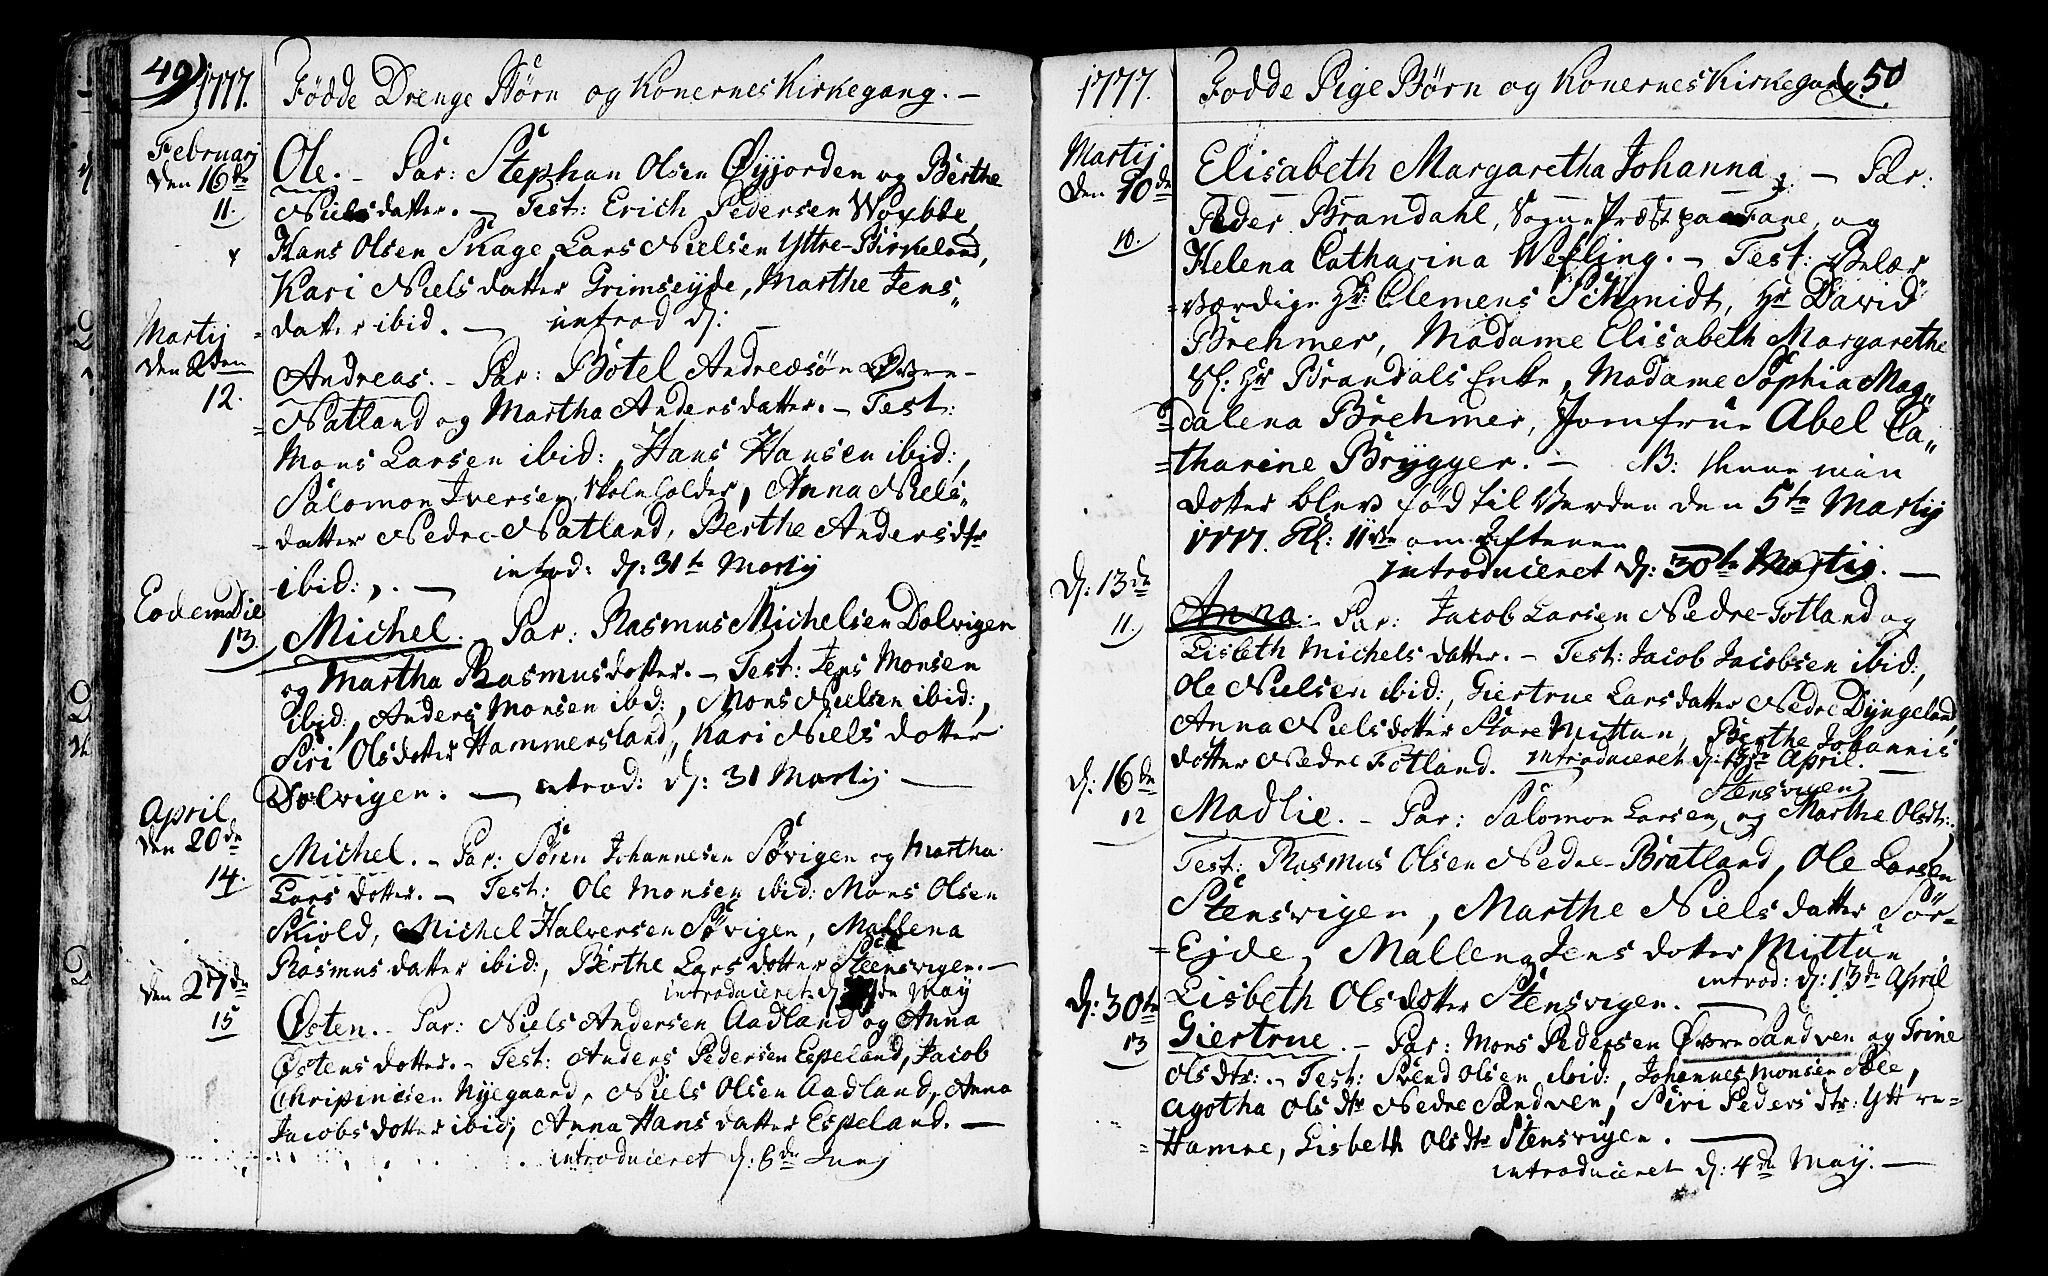 49) 1777. Fødde Drenge Børn og Konernes Kirkegang. –
Februarj
den 16de
11.
Ole. – Par: Stephan Olsen Øyjorden og Berthe
Nielsdatter. – Test: Erich Pedersen
Hans Olsen Skage, Lars Nielsen Yttre-Birkeland,
Kari Nielsdatter Grimseyde, Marthe Jens"
=datter ibid. – introd d:
Martij
den 2den
12.
Andreas. – Par: Botel Andreæsøn Øvre-
=Natland og Martha Andersdatter. – Test:
Mons Larsen ibid:, Hans Hansen ibid:,
Salomon Iversen, Skoleholder, Anna Niels"
=datter Nedre-Natland, Berthe Andersdtr
ibid:,. – introd: d: 31te Martij
Eodem Die
13.
Michel. – Par: Rasmus Michelsen Dolvigen
og Martha Rasmusdotter. – Test: Jens Monsen
ibid:, Anders Monsen ibid:, Mons Nielsen ibid:,
Siri Olsdotter Hammersland, Kari Nielsdotter
Dolvigen. – introd: d: 31 Martij –
April
den 20de
14.
Michel. – Par: Søren Johannesen Søvigen og Martha
Larsdotter. – Test: Ole Monsen ibid: Mons Olsen
Skiold, Michel Halversen Søvigen, Mallena
Rasmusdatter ibid:, Berthe Larsdotter Steensvigen. –
introduceret d: de May
den 27de
15
Østen. – Par: Niels Andersen Aadland og Anna
Østensdotter. – Test: Anders Pedersen Espeland, Jacob
Nyegaard, Niels Olsen Aadland, Anna
Jacobsdotter ibid; Anna Hansdatter Espeland. –
introduceret d: 6de Junj
1777. Fødde Pige Børn og Konernes Kirkegang. (50
Martij
den 10de
10.
Elisabeth Margaretha Johanna. – Par:
Peder Brandahl, Sogne Præst paa Fane, og
Helena Catharina Wesling. – Test: Velær
=værdige Hr: Clemens Schmidt, Hr David
Brehmer, Madame Elisabeth Margarethe
Sl: Hr Brandals Enke, Madame Sophia Mag"
=dalena Brehmer, Jomfrue Abel Ca"
=tharine Brygger. – NB: Denne min
Dotter blev fød til Verden den 5te Martij
1777. Kl: 11ve om Aftenen
introduceret d: 30te Martij. –
d: 13de
11.
Anna. – Par: Jacob Larsen Nedre-Fotland og
Lisbeth Michelsdatter. – Test: Jacob Jacobsen ibid:,
Ole Nielsen ibid:, Giertrue Larsdatter Nedre Dyngeland,
Anna Nielsdotter Store Mittun, Berthe Johannis
dotter Nedre Fotland. introduceret d: April. –
d: 16de
12
Stensvigen
Madlie. – Par: Salomon Larsen, og Marthe Olsdt:.
Test: Rasmus Olsen Nedre-Bratland, Ole Larsen
Stensvigen, Marthe Nielsdatter Sør-
=Ejde, Mallena Jensdotter Mittun
Lisbeth Olsdotter Stensvigen. – introd: d: 13de April
d: 30te
13
Giertrue. – Par: Mons Pedersen Øvre Sandven og Trine
Olsdtr:. – Test: Svend Olsen ibid:, Johannes Monsen
Agotha Olsdtr Nedre Sandven, Siri Pedersdtr: Yttre-
=Hamre, Lisbeth Olsdtr Stensvigen. –
introduceret d: 4de May. –